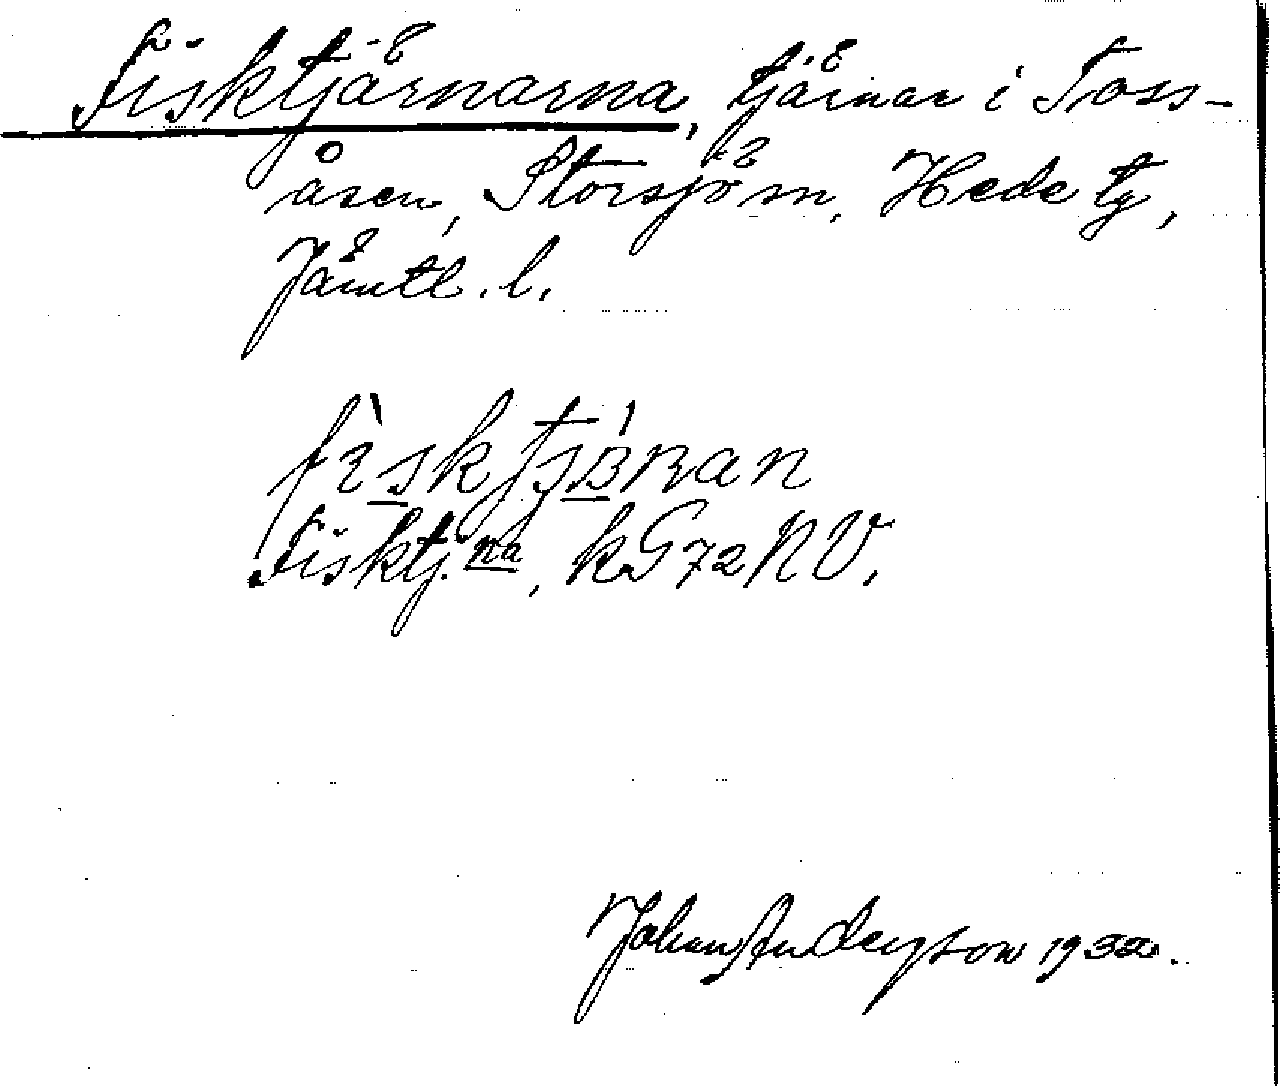 Fisktjärnarna, tjärnar i Toss-
åsen, Storsjö sn, Hede tg,
Jämtl. l.
Fisktj. na, kG72NV.
Johan Anderson 1932.